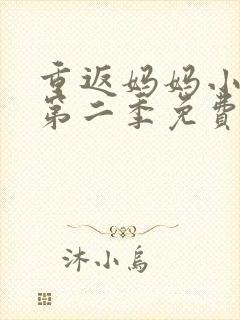 重返妈妈小
第二季免費
沐小鸟